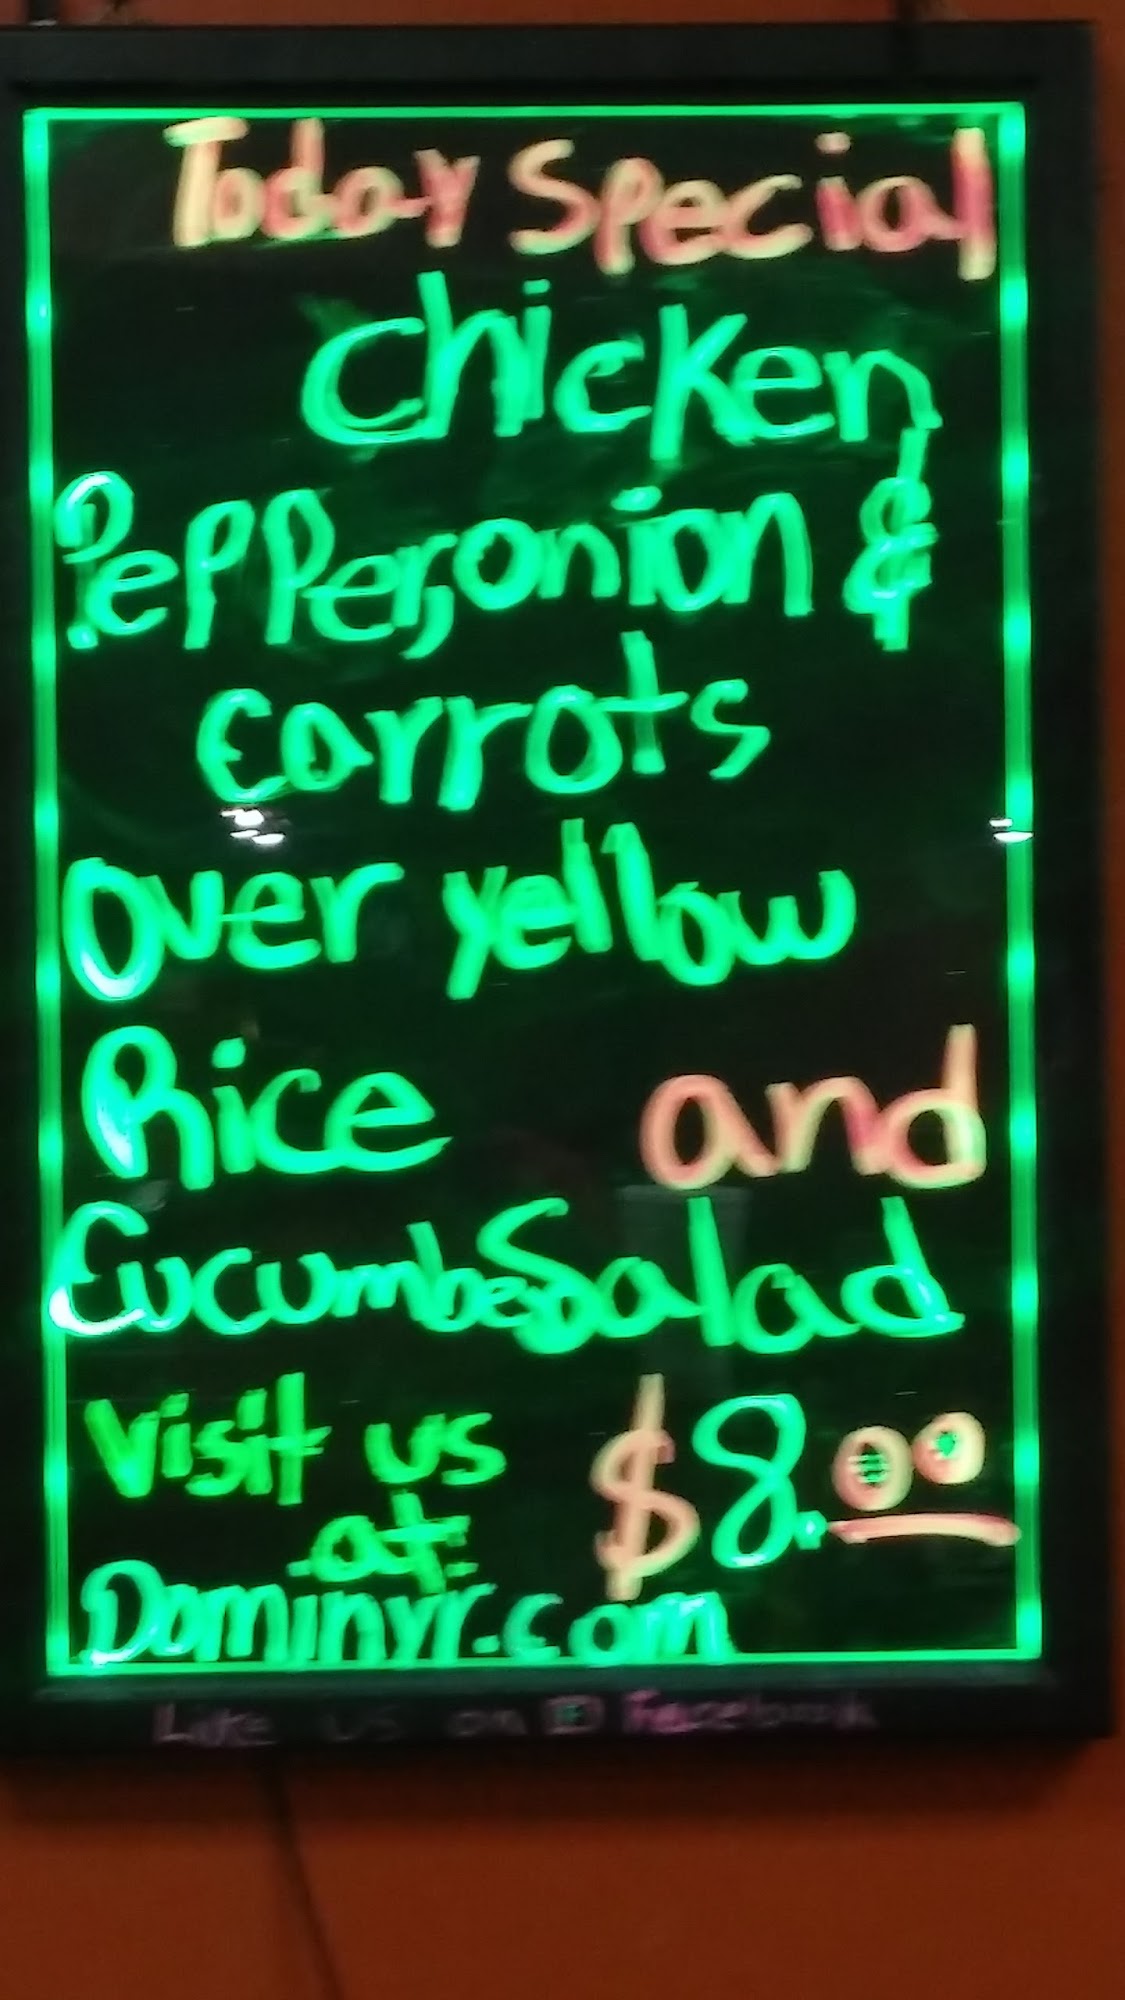 Today Special
Chicken,
Pepper, onion &
Carrots
Over yellow
Rice and
Cucumber Salad
Visit us $8.00
at:
Dominyr.com
Like us on Facebook